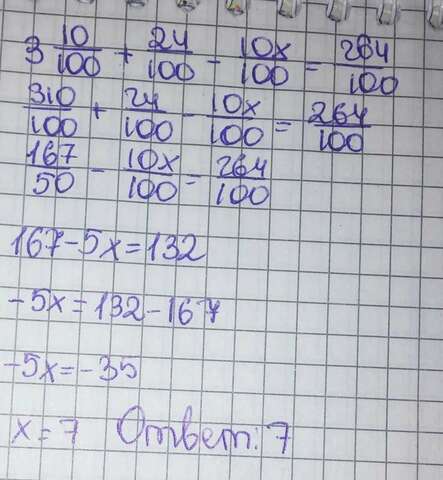 3 10/100 + 24/100 - 10x/100 = 264/100
310/100 + 24/100 - 10x/100 = 264/100
167/50 - 10x/100 = 264/100
167-5x=132
-5x=132-167
-5x=-35
x=7 Ответ: 7